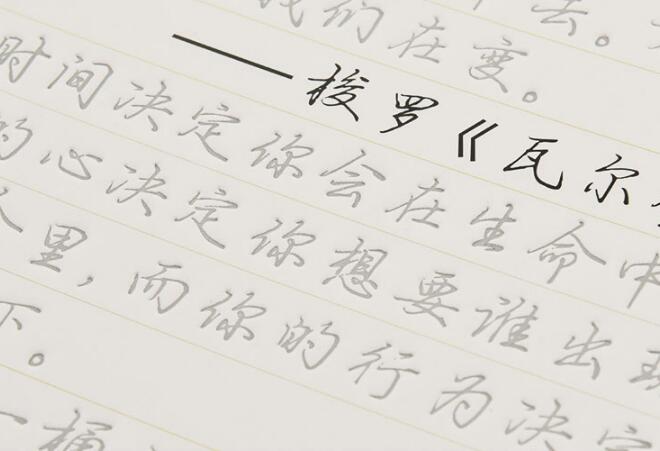 我们在变。
去。
——梭罗《瓦尔
时间决定你会在生命中
的心决定你想要谁出现
人里,而你的行为决定
下。
一桶